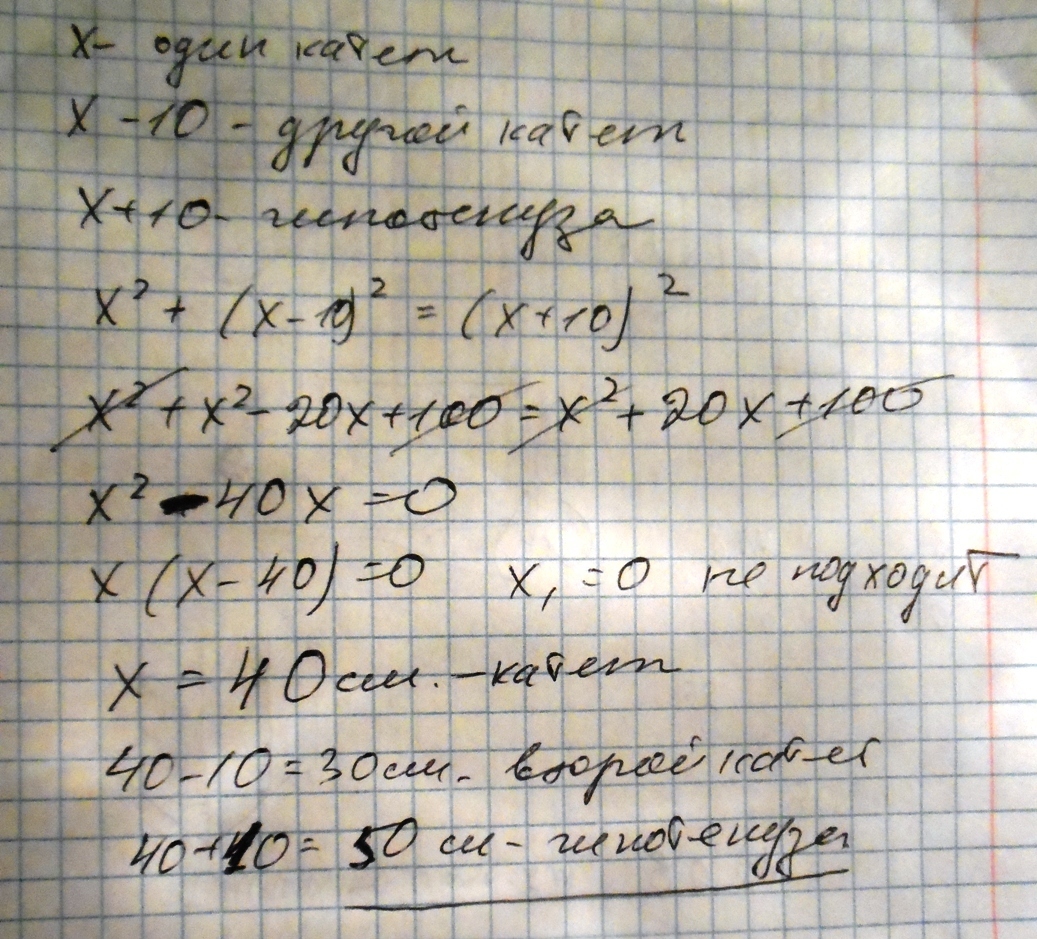 x- один катет
x-10 - другой катет
x+10- гипотенуза
x² + (x-10)² = (x+10)²
x² + x² - 20x + 100 = x² + 20x + 100
x² - 40x = 0
x (x-40) = 0 x₁ = 0 не подходит
x = 40 см. - катет
40-10 = 30 см - второй катет
40+10 = 50 см - гипотенуза